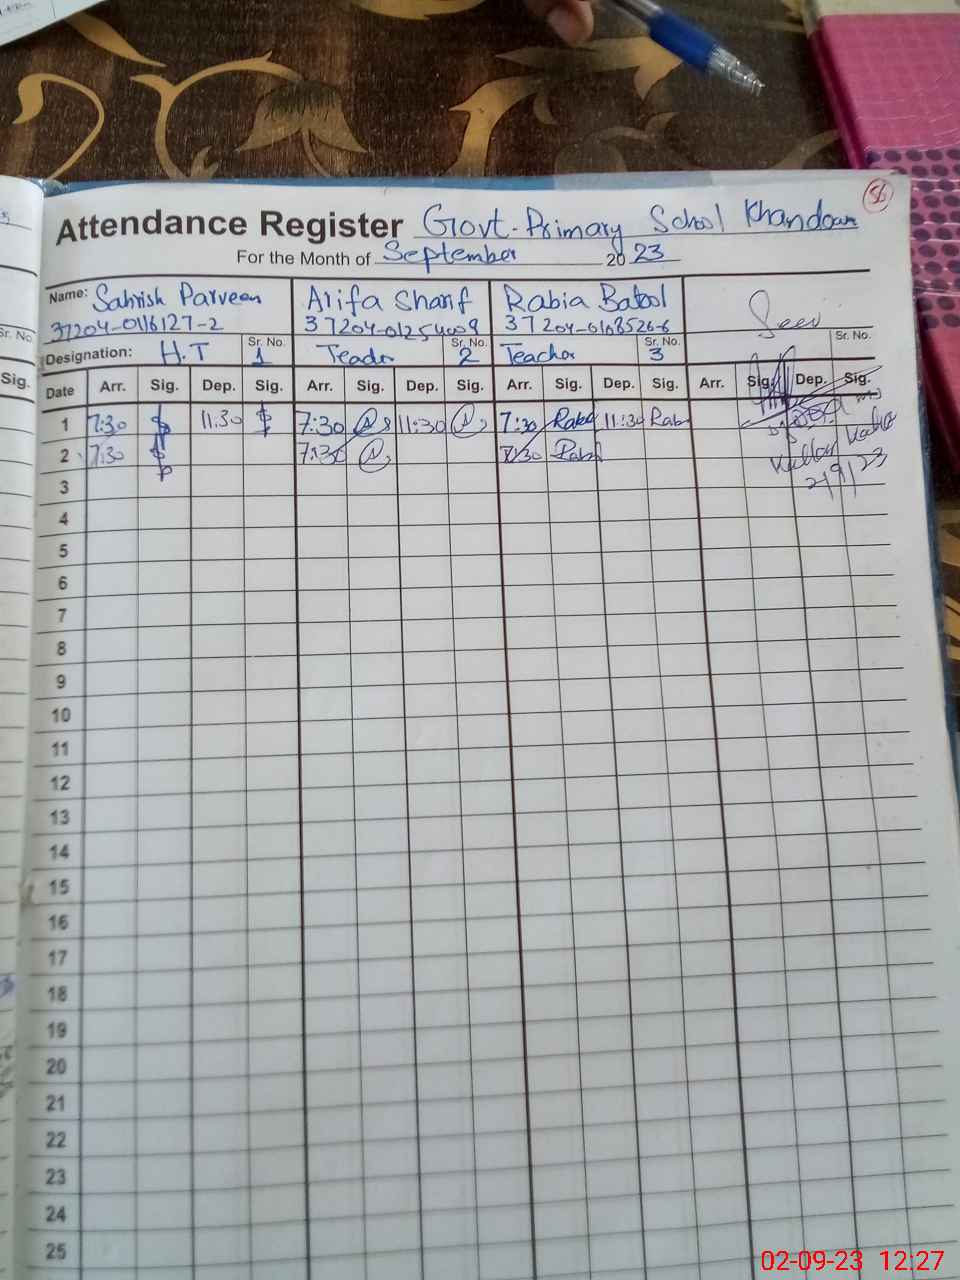 56
Attendance Register Govt. Primary School Khandowa
For the Month of September 2023
Name: Sahrish Parveen Arifa Sharif Rabia Batool Seen
37204-0116127-2 37204-0125400-9 37204-0108526-6
Designation: H.T Sr. No. 1 Teacher Sr. No. 2 Teacher Sr. No. 3 Sr. No.
Date Arr. Sig. Dep. Sig. Arr. Sig. Dep. Sig. Arr. Sig. Dep. Sig. Arr. Sig. Dep. Sig.
1 7:30 11:30 7:30 11:30 7:30 Rab 11:30 Rab
2 7:30 7:30 7:30 Rab
2/9/23
3
4
5
6
7
8
9
10
11
12
13
14
15
16
17
18
19
20
21
22
23
24
25
Sr. No.
Sig.
02-09-23 12:27